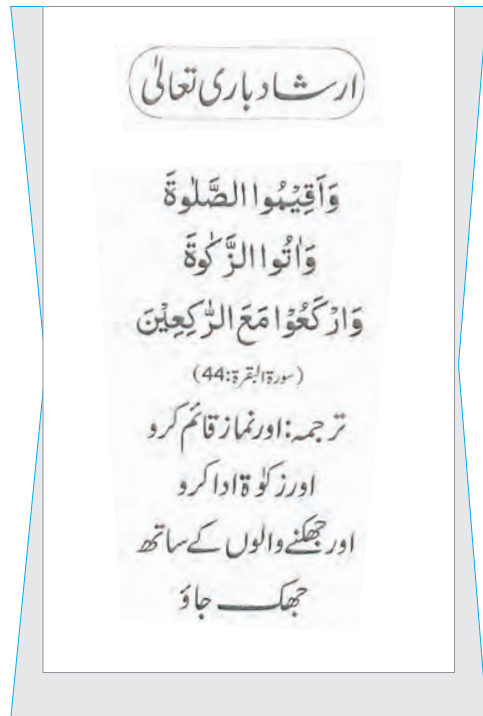 ارشاد باری تعالیٰ
وَاَقِيْمُوا الصَّلٰوةَ
وَاٰتُوا الزَّكٰوةَ
وَارْكَعُوْا مَعَ الرّٰكِعِيْنَ
(سورۃ البقرۃ:44)
ترجمہ: اور نماز قائم کرو
اور زکوٰۃ ادا کرو
اور جھکنے والوں کے ساتھ
جھک جاؤ